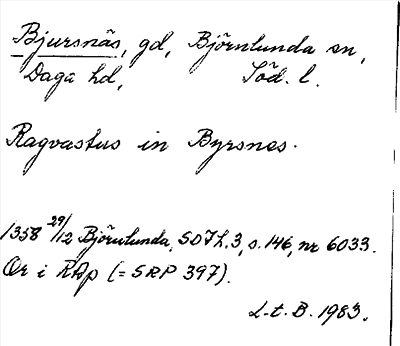 Bjursnäs, gd, Björnlunda sn,
Daga hd, Söd. l.
Ragvastus in Byrsnes.
1358 29/12 Björnlunda, SD 7 h. 3, s. 146, nr 6033.
Or i RAp (= SRP 397).
L.t.B. 1983.